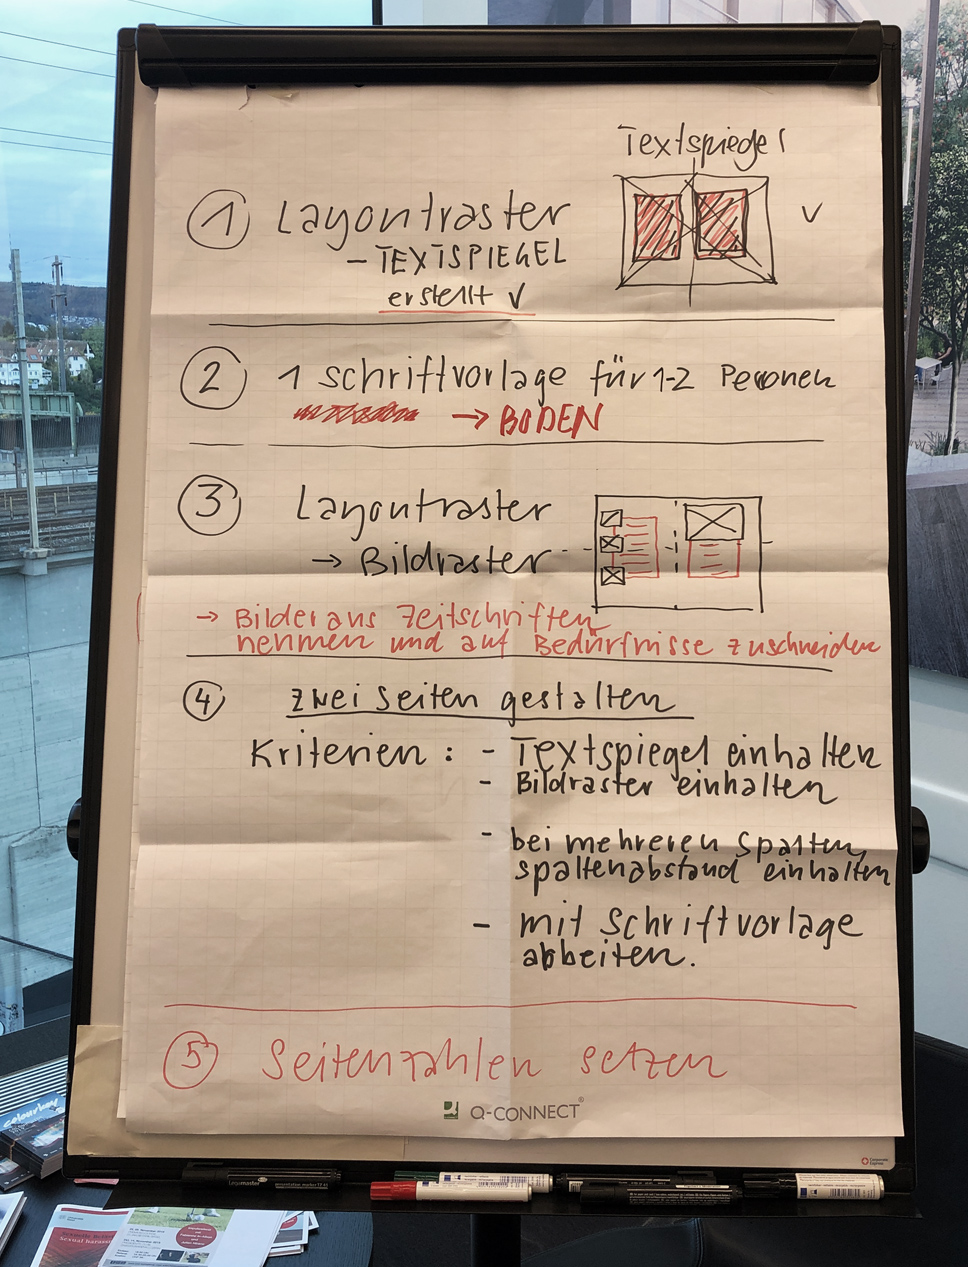 Textspiegel
1 Layoutraster
- TEXTSPIEGEL
erstellt ✓
✓
2 1 Schriftvorlage für 1-2 Personen
→ BODEN
3 Layoutraster
→ Bildraster
→ Bilder aus Zeitschriften
nehmen und auf Bedürfnisse zuschneiden
4 zwei Seiten gestalten
Kriterien : - Textspiegel einhalten
- Bildraster einhalten
- bei mehreren Spalten,
spaltenabstand einhalten
- mit Schriftvorlage
arbeiten.
5 Seitenzahlen setzen
Q-CONNECT®
colourkey